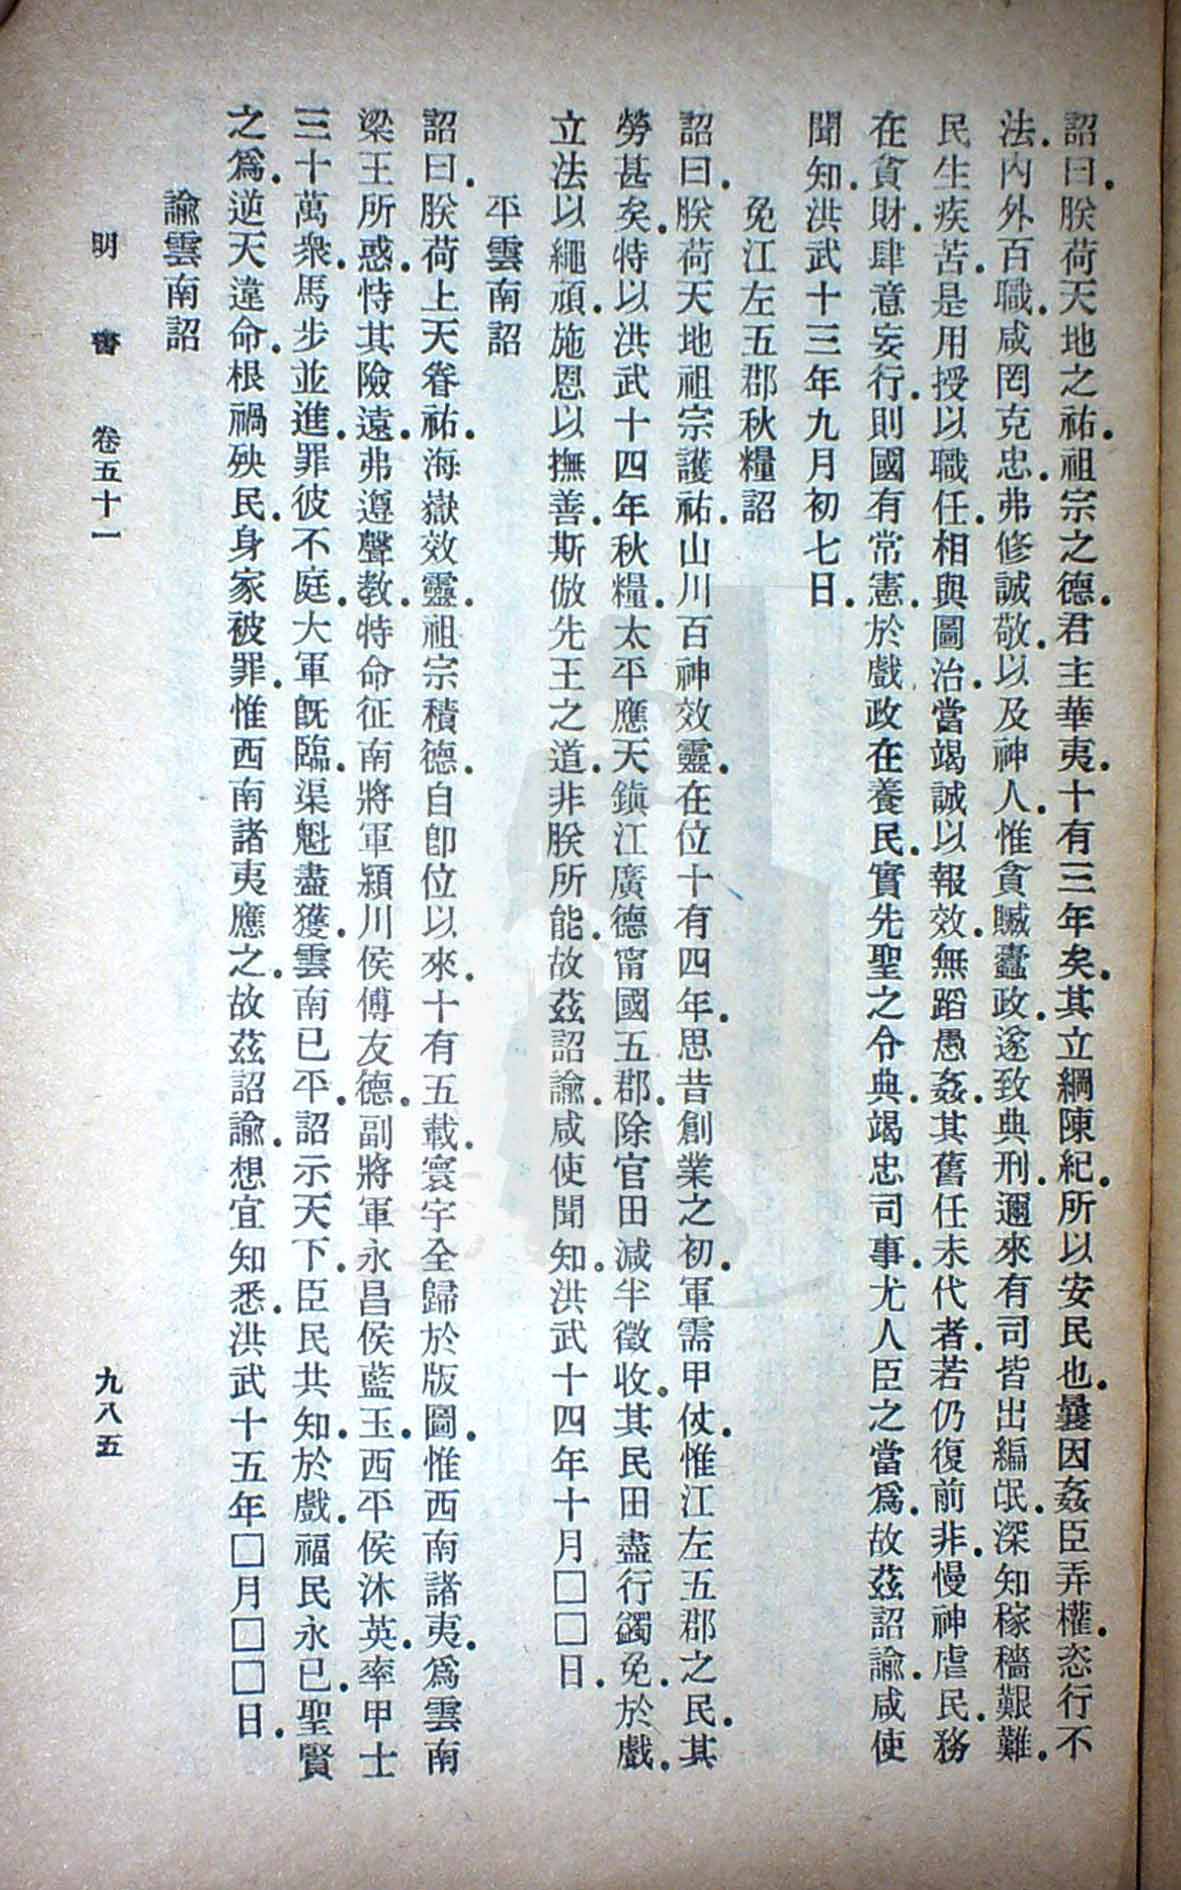 詔曰.朕荷天地之祐.祖宗之德.君主華夷.十有三年矣.其立綱陳紀.所以安民也.曩因姦臣弄權.恣行不
法.內外百職.咸罔克忠.弗修誠敬.以及神人.惟貪贓蠹政.遂致典刑.邇來有司皆出編氓.深知稼穡艱難.
民生疾苦.是用授以職任.相與圖治.當竭誠以報效.無蹈愚姦.其舊任未代者.若仍復前非.慢神虐民.務
在貪財.肆意妄行.則國有常憲.於戲.政在養民.實先聖之令典.竭忠司事.尤人臣之當爲.故茲詔諭.咸使
聞知.洪武十三年九月初七日.
免江左五郡秋糧詔
詔曰.朕荷天地祖宗護祐.山川百神效靈.在位十有四年.思昔創業之初.軍需甲仗.惟江左五郡之民.其
勞甚矣.特以洪武十四年秋糧.太平應天鎮江廣德甯國五郡.除官田減半徵收.其民田盡行蠲免.於戲.
立法以繩頑.施恩以撫善.斯倣先王之道.非朕所能.故茲詔諭.咸使聞知.洪武十四年十月□□日.
平雲南詔
詔曰.朕荷上天眷祐.海嶽效靈.祖宗積德.自卽位以來.十有五載.寰宇全歸於版圖.惟西南諸夷.爲雲南
梁王所惑.恃其險遠.弗遵聲教.特命征南將軍潁川侯傅友德.副將軍永昌侯藍玉.西平侯沐英.率甲士
三十萬衆.馬步並進.罪彼不庭.大軍旣臨.渠魁盡獲.雲南已平.詔示天下.臣民共知.於戲.福民永已.聖賢
之爲.逆天違命.根禍殃民.身家被罪.惟西南諸夷應之.故茲詔諭.想宜知悉.洪武十五年□月□□日.
諭雲南詔
明書 卷五十一 九八五